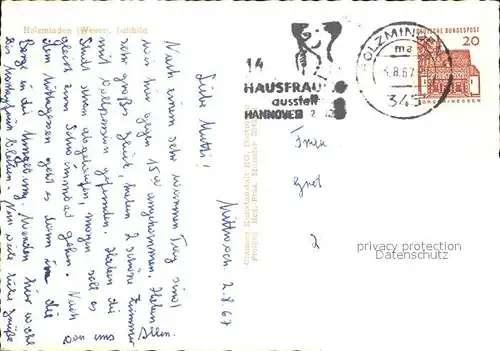 Holzminden (Weser), Luftbild
Mittwoch 2.8.67
Liebe Mutti!
Nach einem sehr warmen Tag sind
wir hier gegen 15h angekommen. Haben
sehr großes Glück, haben 2 schöne Zimmer
mit Vollpension gefunden. Haben die
Stadt schon abgelaufen, morgen soll es
gleich zum Schwimmbad gehen. Nach
dem Mittagessen geht es dann in die
Berge in die Umgebung. Werden hier wohl
bleiben. Nun viele liebe Grüße
von uns Allen.
Cramers Kunstanstalt KG, Dortmund
14
HAUSFRAU
ausstell
HANNOVER
HOLZMINDEN
.8.67
345
DEUTSCHE BUNDESPOST
20
HESSEN
Frau
2
privacy protection
Datenschutz